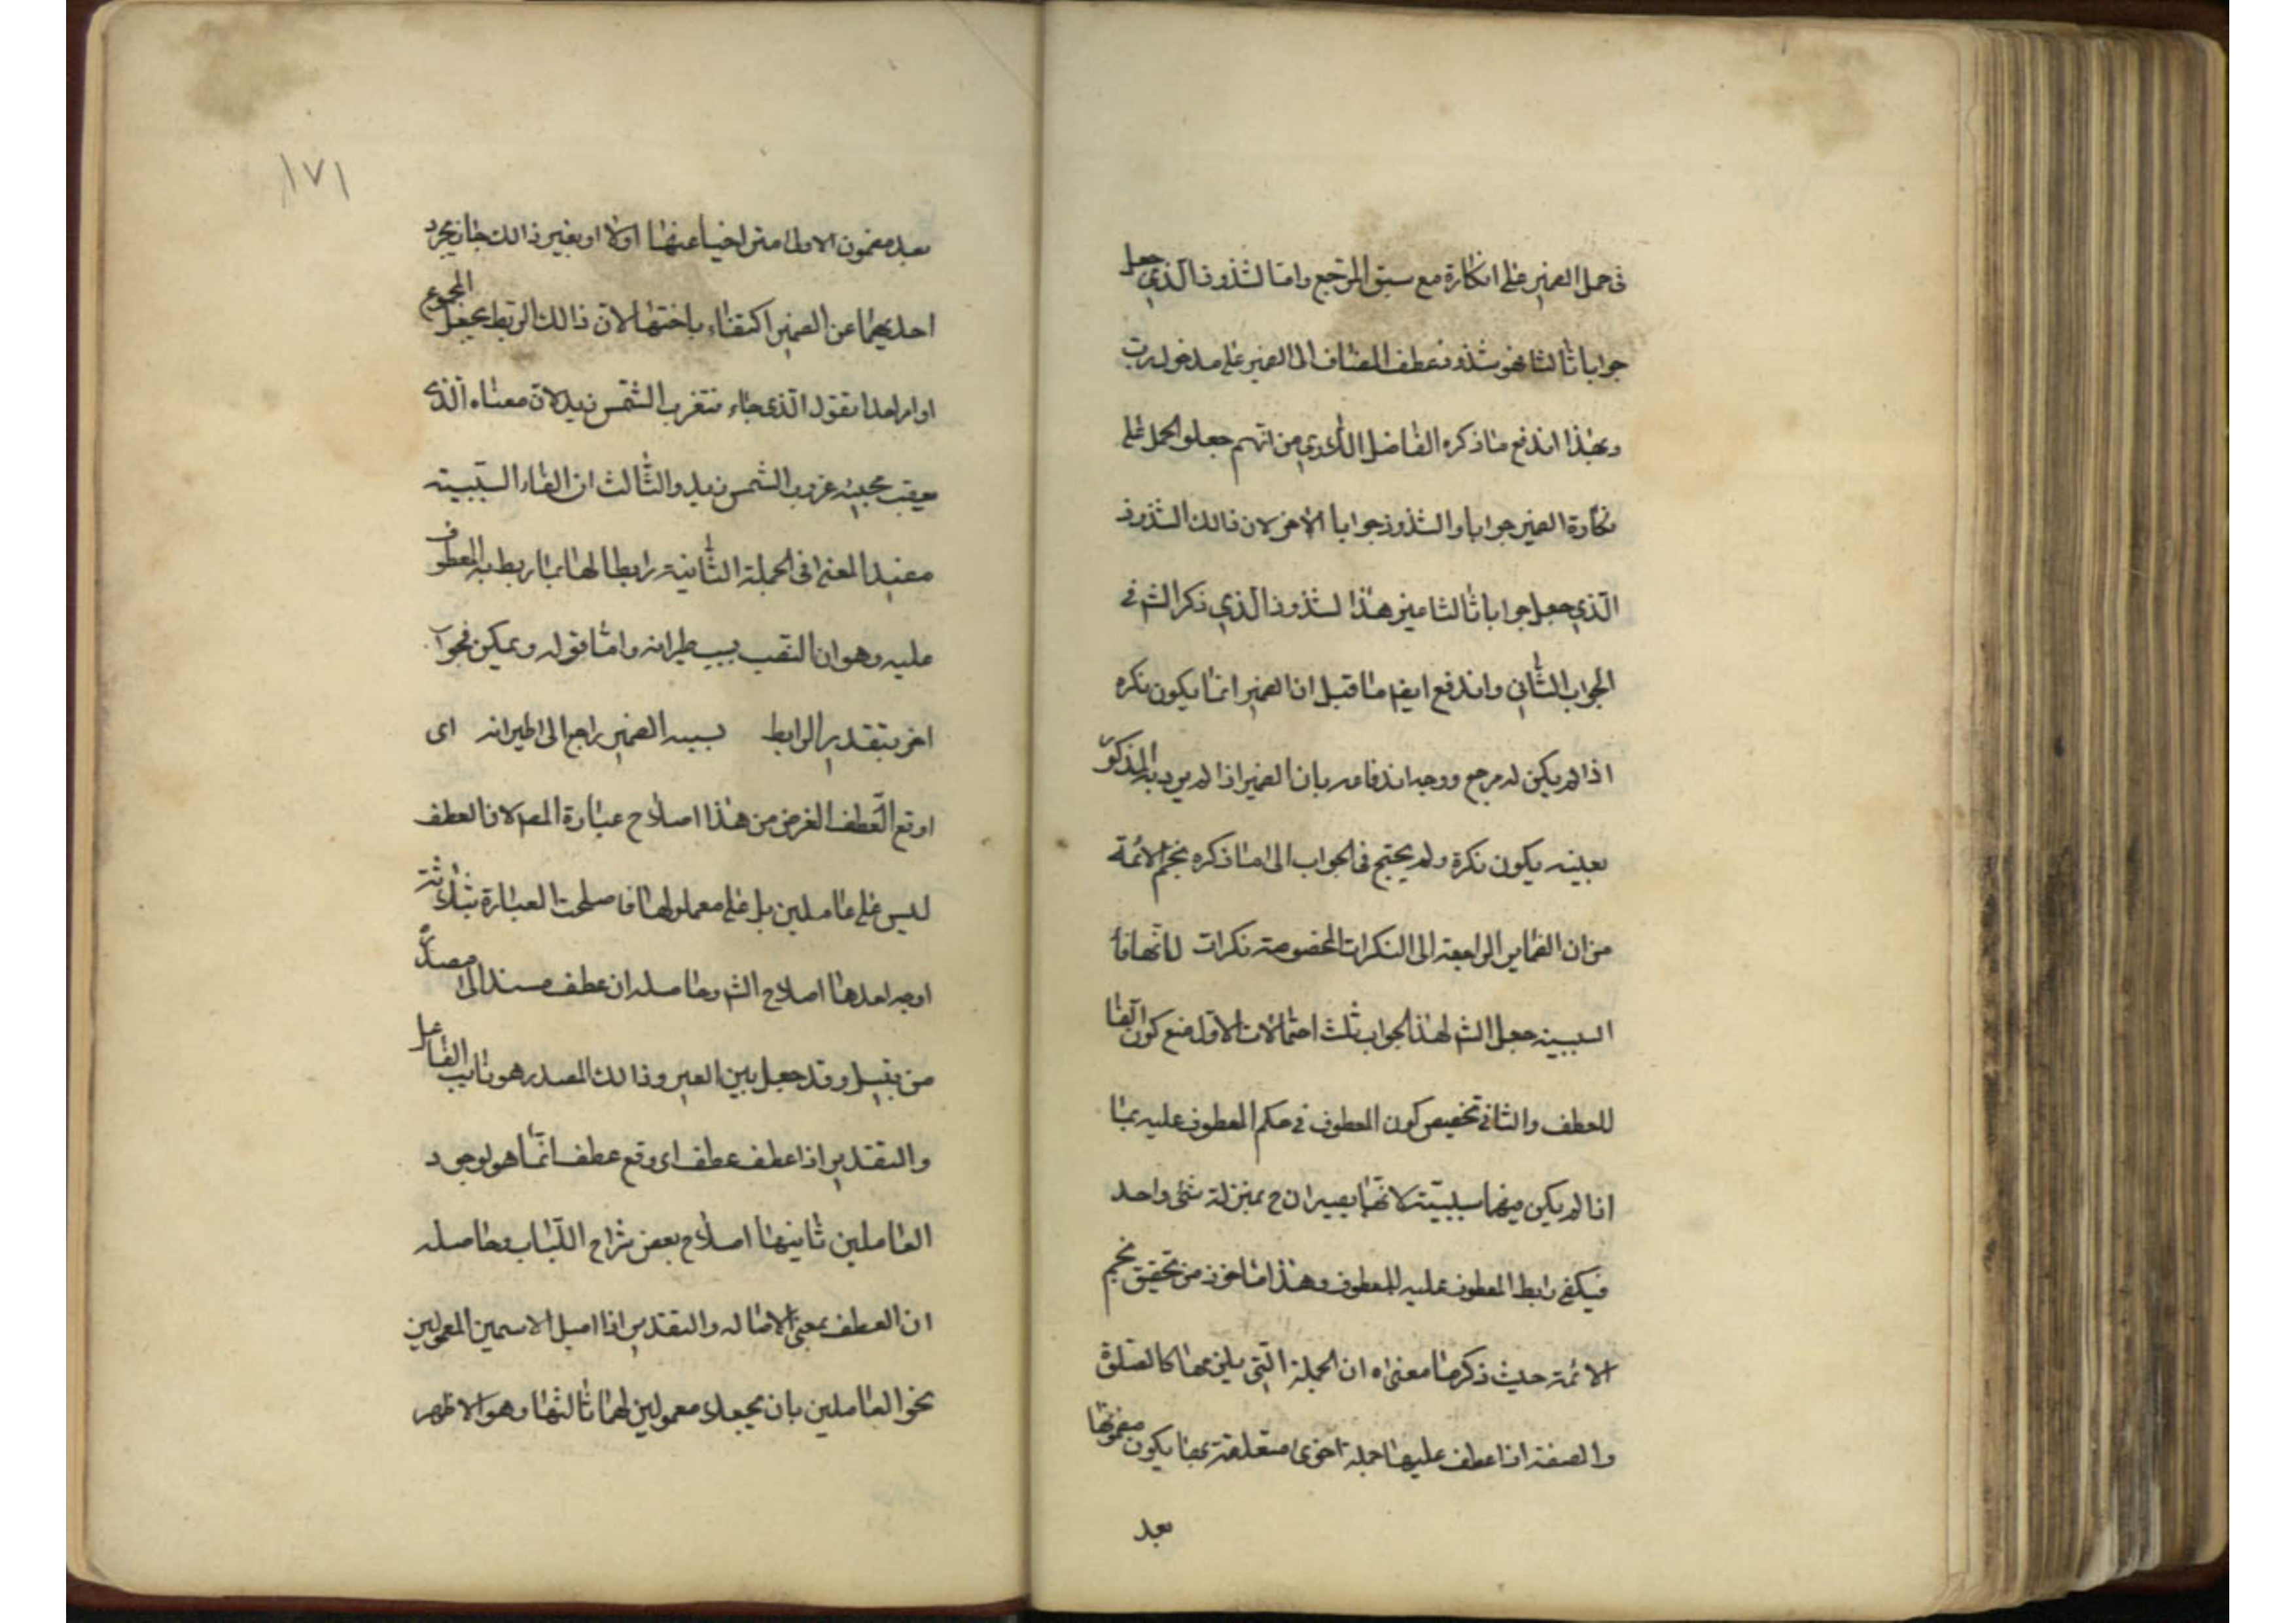 في حمل الضمير على انكاره مع سبق المرجع واما الشذوذ الذي جعل
جوابا ثالثا فهو شذوذ عطف المضاف الى الضمير على مدخول رب
وبهذا اندفع ما ذكره الفاضل اللاري من انهم جعلوا الحمل على
نكارة الضمير جوابا والشذوذ جوابا لاخر لان ذالك الشذوذ
الذي جعل جوابا ثالثا ميز هذا لشذوذ الذي ذكر الشم في
الجواب الثاني واندفع ايضا ما قيل ان الضمير انما يكون نكره
اذا لم يكن له مرجع ووجه اندفاعه بان الضمير اذا لم يرد به المذكور
بعينه يكون نكرة ولم يحتج في الجواب الى ما ذكره نجم الائمة
من ان الضماير الراجعة الى النكرات المخصوصة نكرات لانها فا
السببية جعل الشم لهذا الجواب ثلث احتمالات الاول منع كون الفا
للعطف والثاني تخصيص كون المعطوف في حكم المعطوف عليه بما
اذا لم يكن فيها سببيّة لانها يصيران ح بمنزلة شئ واحد
فيكفي رابط المعطوف عليه للمعطوف وهذا ماخوذ من تحقيق نجم
الائمة حيث ذكر ما معناه ان الجملة التي يلزمها كالصلوة
والصفة اذا عطف عليها جملة اخرى متعلقة بها يكون مضمونها
بعد
١٧١
بعد مضمون الاولى متراخيا عنها اولا او بغير ذالك جاز تجرد
احديهما عن الضمير اكتفاء باختها لان ذالك الربط يجعل المجموع
او امر احدا تقول الذي جاء فتغرب الشمس زيد لان معناه الذي
يعقب مجيئه غروب الشمس زيد والثالث ان الفاء السببية
مفيد المعنى في الجملة الثانية رابطا لها بما ربط به المعطوف
عليه وهو ان الغضب بسبب طيرانه واما قوله ويمكن فجواب
اخر بتقدير الرابط بسببه الضمير راجع الى طيرانه اى
اوقع العطف الغرض من هذا اصلاح عبارة المصم لان العطف
ليس على عاملين بل على معمولهما فاصلحت العبارة بثلاثة
اوجه احدها اصلاح الشم وحاصله ان عطف مسند الى مصدر
من قبيل وقد حيل بين العير وذالك المصدر هو نايب الفاعل
والتقدير اذا عطف عطف اى وقع عطف انما هو لوجود
العاملين ثانيها اصلاح بعض شراح اللباب وحاصله
ان العطف بمعنى الامالة والتقدير اذا اميل الاسمين المعمولين
نحو العاملين بان يجعلا معمولين لهما ثالثها وهو الاظهر